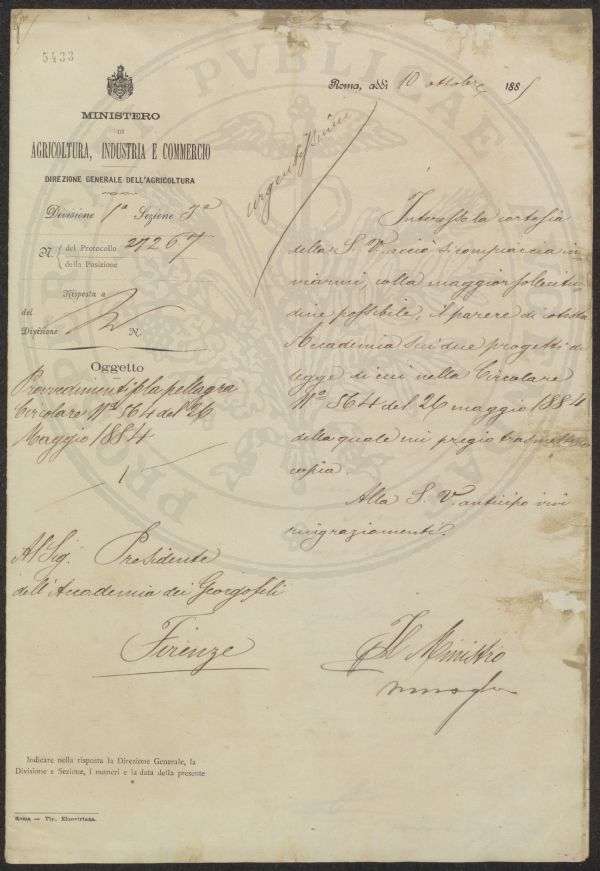 5433
Roma, addì 10 ottobre 1885
MINISTERO
DI
AGRICOLTURA, INDUSTRIA E COMMERCIO
DIREZIONE GENERALE DELL'AGRICOLTURA
Divisione 1ª Sezione 3ª
N. del Protocollo 27267
della Posizione
Risposta a
del
Divisione N.
Oggetto
Provvedimenti p la pellagra
Circolare Nº 564 del 26
Maggio 1884
Al Sig. Presidente
dell'Accademia dei Georgofili
Firenze
urgentissimo
Interesso la cortesia
della S. V. acciò si compiaccia in
viarmi, colla maggior sollecitu
dine possibile, il parere di cotesta
Accademia sui due progetti di
legge di cui nella Circolare
Nº 564 del 26 maggio 1884
della quale mi pregio trasmettere
copia.
Alla S. V. anticipo vivi
ringraziamenti.
Il Ministro
Indicare nella risposta la Direzione Generale, la
Divisione e Sezione, i numeri e la data della presente
Roma — Tip. Elzeviriana.
PVBLICAE